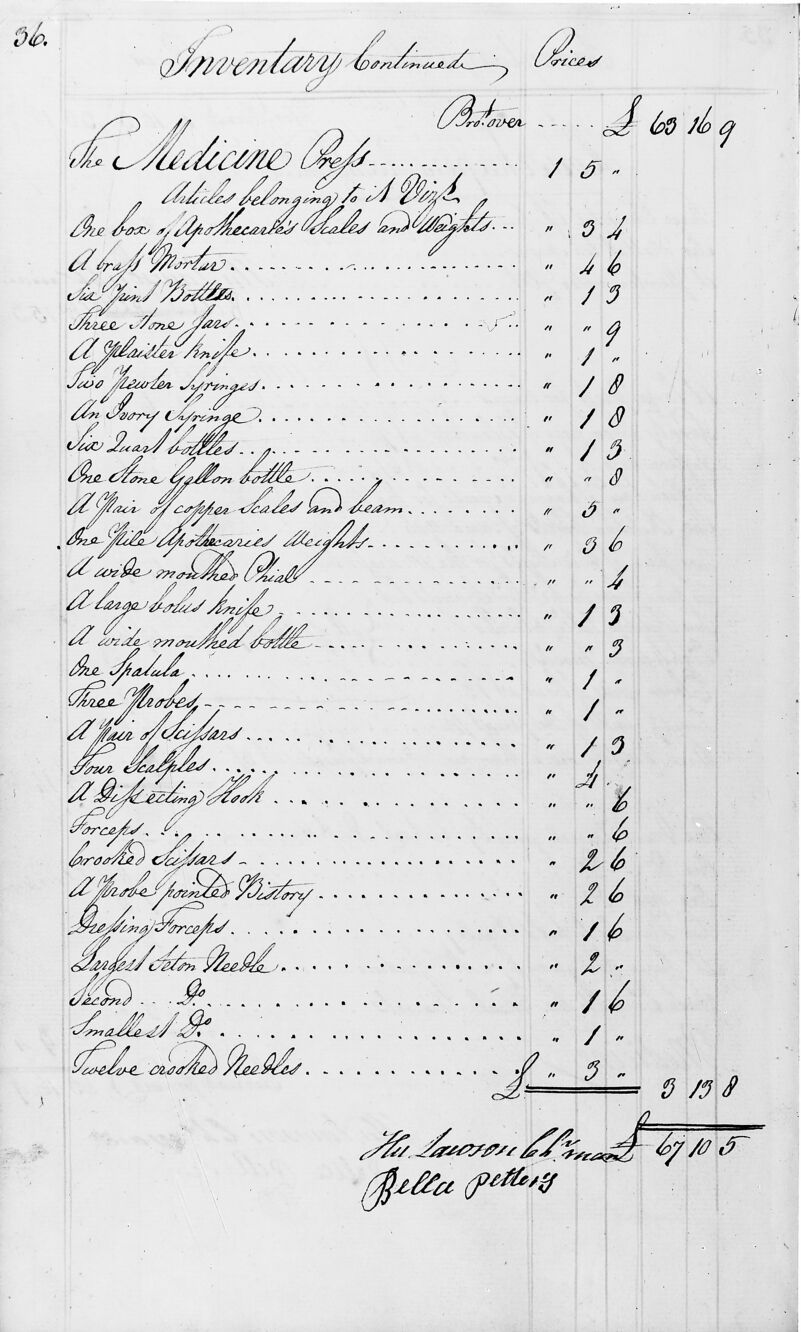 36.
Inventary Continued Prices
Bro.t over ..... £ 63 16 9
The Medicine Press ............ 1 5 "
Articles belonging to it Vizt.
One box of Apothecarie's Scales and Weights ... " 3 4
A brass Mortar ............ " 4 6
Six pint Bottles ............ " 1 3
Three Stone Jars ............ " " 9
A Plaister knife ............ " 1 "
Two Pewter Syringes ............ " 1 8
An Ivory Syringe ............ " 1 8
Six Quart bottles ............ " 1 3
One Stone Gallon bottle ............ " " 8
A Pair of copper Scales and beam ............ " 5 "
One Pile Apothecaries Weights ............ " 3 6
A wide mouthed Phial ............ " " 4
A large bolus knife ............ " 1 3
A wide mouthed bottle ............ " " 3
One Spatula ............ " 1 "
Three Probes ............ " 1 "
A Pair of Scissars ............ " 1 3
Four Scalples ............ " 4
A Dissecting Hook ............ " " 6
Forceps ............ " " 6
Crooked Scissars ............ " 2 6
A Probe pointed Bistory ............ " 2 6
Dressing Forceps ............ " 1 6
Largest Seton Needle ............ " 2 "
Second Do. ............ " 1 6
Smallest Do. ............ " 1 "
Twelve crooked Needles ............ " 3 "
£ 3 13 8
Hu Lawson Chr.man £ 67 10 5
Bella Petters